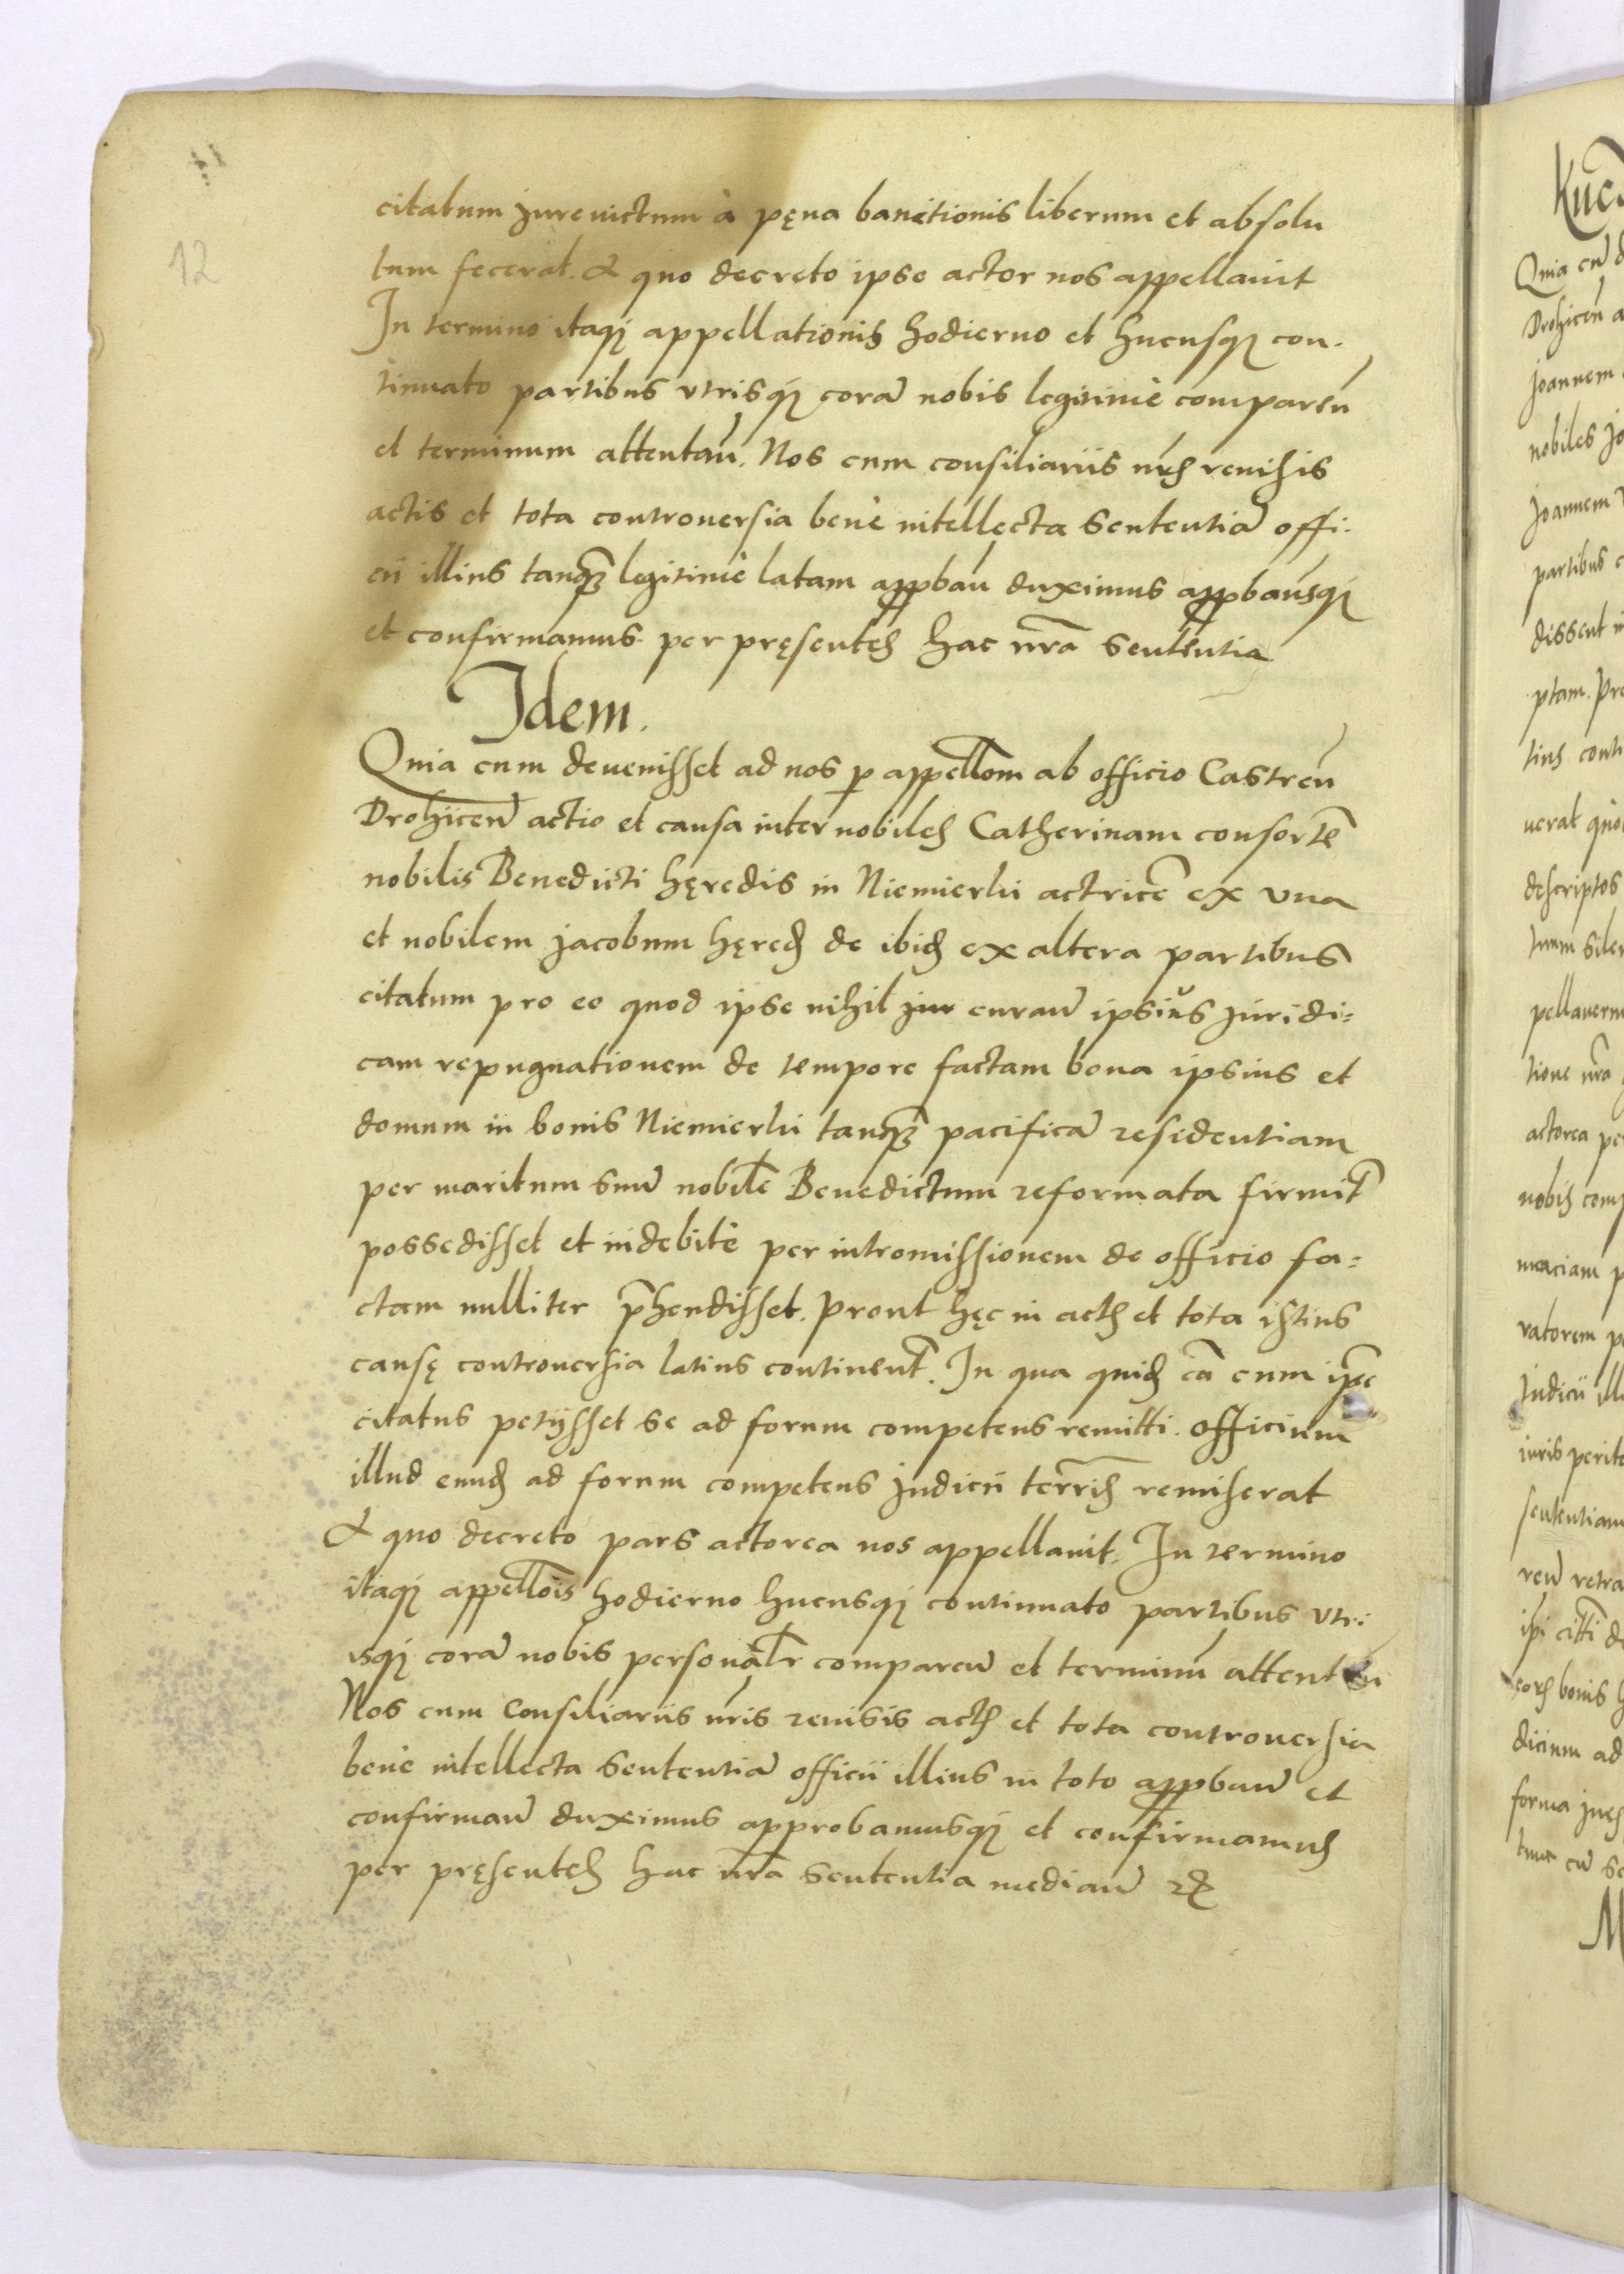 12
citatum jurevictum à pęna banitionis liberum et absolu
tum fecerat. & quo decreto ipse actor nos appellavit
In termino itaqȝ appellationis hodierno et hucusqȝ con-
tinuato partibus vtrisqȝ corā nobis legitimè comparen̄
et terminum attentan̄. Nos cum consiliariis nr̄is revisis
actis et tota controuersia benè intellecta sententiā offi-
cii illius tanqȝ legitimè latam appban̄ duximus appbamusqȝ
et confirmamus per pręsentes hac nr̄a sententia
Idem.
Quia cum devenisset ad nos p appellōm ab officio Castren̄
Drohicen̄ actio et causa inter nobiles Catherinam consortē
nobilis Benedicti hęredis in Niemierki actricē ex vna
et nobilem jacobum hęred de ibid ex altera partibus
citatum pro eo quod ipse nihil jur curan̄ ipsius juridi=
cam repugnationem de tempore factam bona ipsius et
domum in bonis Niemierki tanqȝ pacificā residentiam
per maritum suū nobilē Benedictum reformata firmit̄
possedisset et indebitè per intromissionem de officio fa=
ctam nulliter p̄hendisset. Prout hęc in actis et tota istius
causę controuersia latius continent̄. In qua quid cā cum ip̄e
citatus petijsset se ad forum competens remitti. Officium
illud eund ad forum competens judicii terr̄is remiserat
& quo decreto pars actorea nos appellavit. In termino
itaqȝ appellōis hodierno hucusqȝ continuato partibus vtri
isqȝ corā nobis personalr̄ comparen̄ et terminū attentan
Nos cum Consiliariis nr̄is revisis actis et tota controuersia
benè intellecta sententiā officii illius in toto appban̄ et
confirman̄ duximus approbamusqȝ et confirmamus
per pręsentes hac nr̄a sententia median̄ rȝ
Quia cū
Drohicen̄
joannem
nobiles jo
joannem
partibus
dissent
ptam. Pre
tius conti
uerat
descriptos
pellaverun
tione nr̄a
actorea pe
nobis comp
maciam p
vatorem p
judicii ill
iuris perit
sententiam
retra
bonis
dicium ad
forma